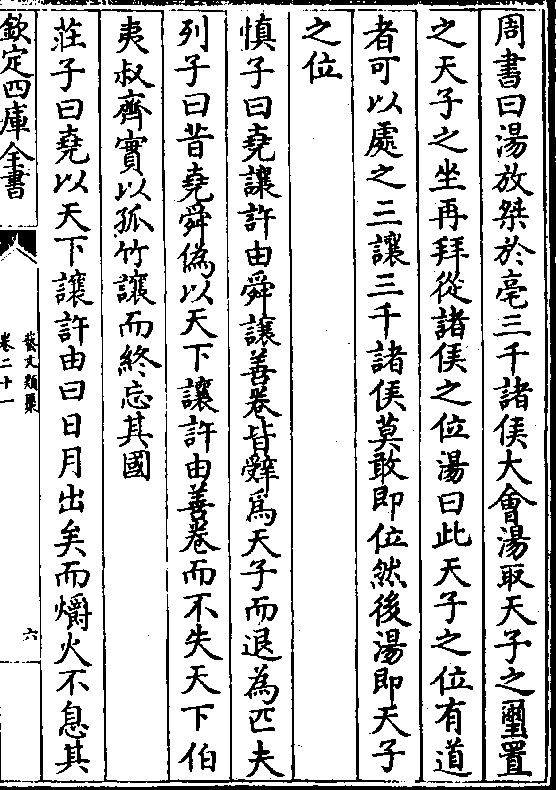 周書曰湯放桀於亳三千諸侯大會湯取天子之璽置
之天子之坐再拜從諸侯之位湯曰此天子之位有道
者可以處之三讓三千諸侯莫敢即位然後湯即天子
之位
慎子曰堯讓許由舜讓善卷皆辭為天子而退為匹夫
列子曰昔堯舜偽以天下讓許由善卷而不失天下伯
夷叔齊實以孤竹讓而終忘其國
莊子曰堯以天下讓許由曰日月出矣而爝火不息其
欽定四庫全書
藝文類聚
卷二十一
六